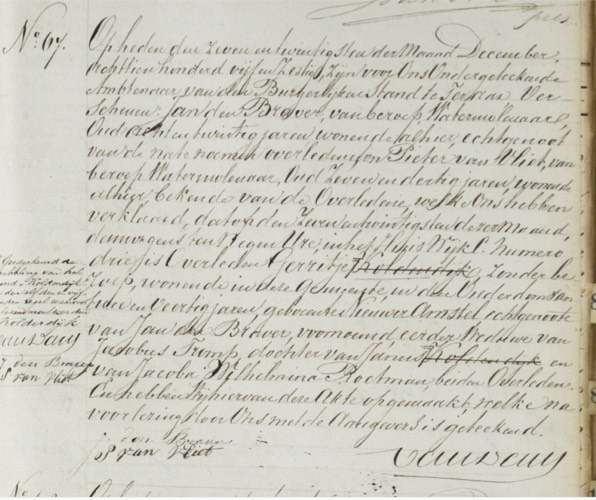 No. 67.
Op heden den Zeven en twintigsten der Maand December,
achttien honderd vijf en Zestig, Zijn voor Ons Ondergeteekende
Ambtenaar van den Burgerlijken Stand te Ter Aar Ver-
schenen: Jan den Braver, van beroep Watermolenaar,
Oud acht en twintig jaren wonende alhier, echtgenoot
van de nate noemen overledene en Pieter van Vliet, van
beroep Watermolenaar, Oud Zeven en dertig jaren, wonende
alhier bekende van de Overledene, welke Ons hebben
verklaard, dat op den Zeven en twintigsten dezer Maand,
des morgens ten Negen Ure, in het Huis Wijk L. Numero
drie, is Overleden Gerritje Holdendijk, Zonder be-
roep, wonende in deze Gemeente, in den Ouderdom van
twee en veertig jaren, geboren te Nieuwer Amstel echtgenoote
van Jan den Braver, voornoemd, eerder Weduwe van
Jacobus Tromp, dochter van Janus Holdendijk en
van Jacoba Wilhelmina Rootman, beiden Overleden.
En hebben Wij hiervan deze Akte opgemaakt, welke na
voorlezing door Ons met de Aangevers is geteekend.
J den Braver
P van Vliet
Goedgekeurd de
J den Braver
P van Vliet